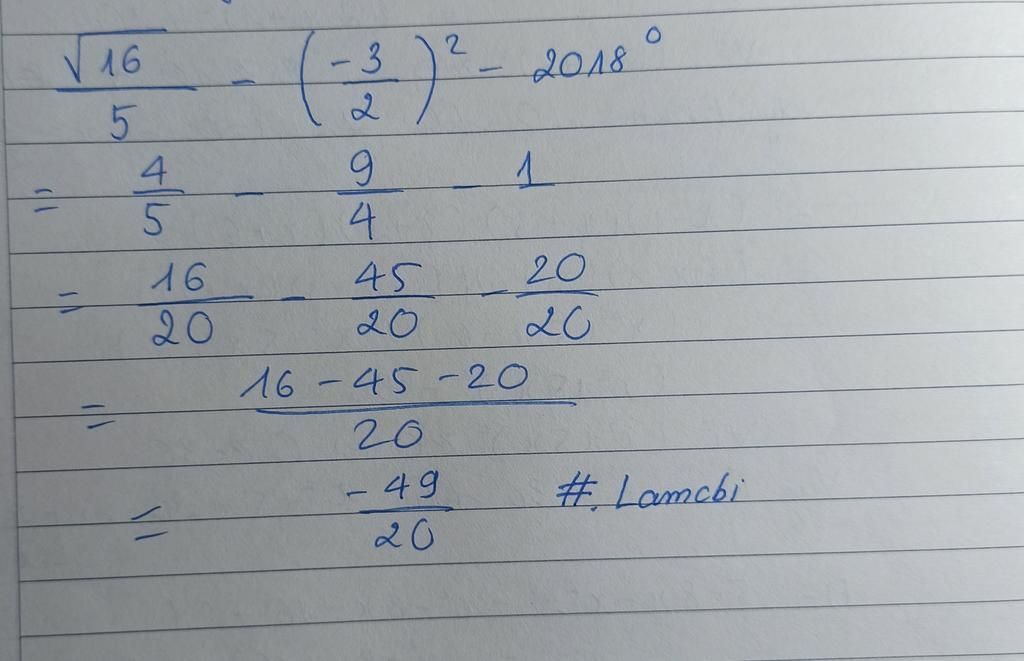 √16/5 - (-3/2)² - 2018⁰
= 4/5 - 9/4 - 1
= 16/20 - 45/20 - 20/20
= 16 - 45 - 20/20
= -49/20 #. Lamcbi